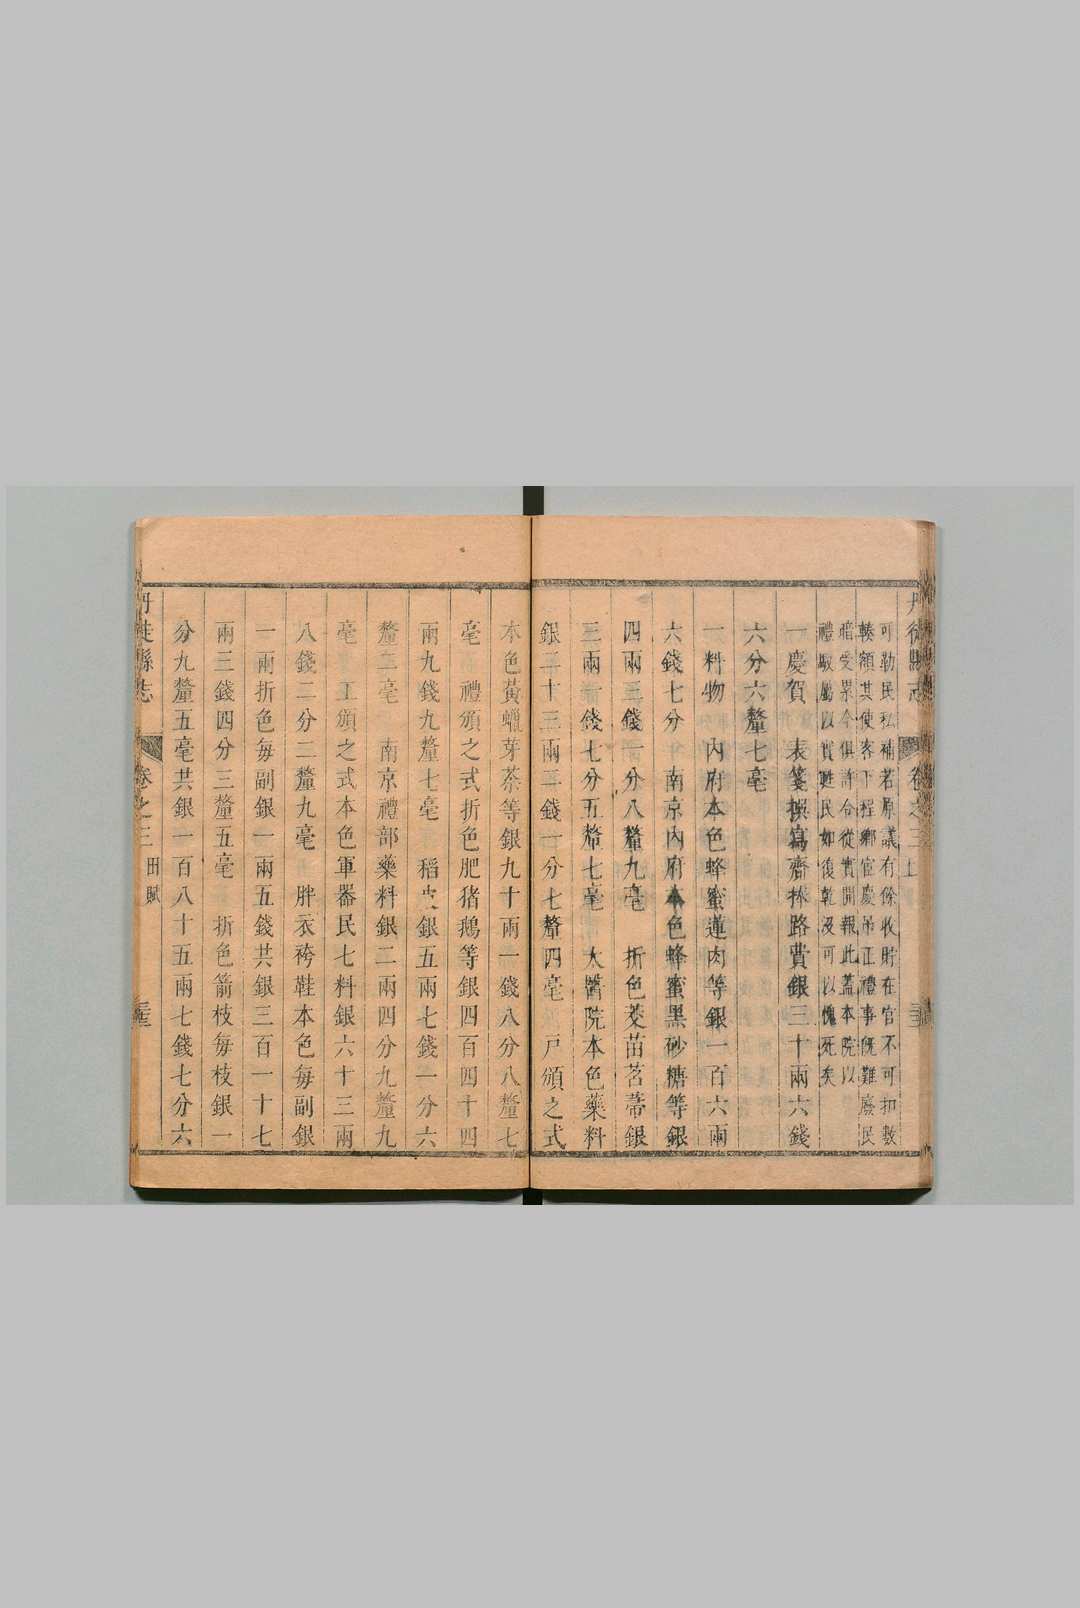 丹徒縣志 卷之三上
可勒民私補若原議有餘收貯在官不可扣數
輳額其使客下程鄉宦慶吊正禮事旣難廢民
暗受累今俱許合從實開報此蓋本院以
禮馭屬以實甦民如後乾沒可以愧死矣
一慶賀 表箋撰寫齎捧路費銀三十兩六錢
六分六釐七毫
一料物 內府本色蜂蜜蓮肉等銀一百六兩
六錢七分 南京內府本色蜂蜜黑砂糖等銀
四兩三錢一分八釐九毫 折色茭苗茗蒂銀
三兩一錢七分五釐七毫 太醫院本色藥料
銀二十三兩二錢一分七釐四毫 戸頒之式
本色黃蠟芽茶等銀九十兩一錢八分八釐七
毫 禮頒之式折色肥猪鵝等銀四百四十四
兩九錢九釐七毫 稻皮銀五兩七錢一分六
釐三毫 南京禮部藥料銀二兩四分九釐九
毫 工頒之式本色軍器民七料銀六十三兩
八錢二分二釐九毫 胖衣袴鞋本色每副銀
一兩折色每副銀一兩五錢共銀三百一十七
兩三錢四分三釐五毫 折色箭枝每枝銀一
分九釐五毫共銀一百八十五兩七錢七分六
丹徒縣志 卷之三 田賦